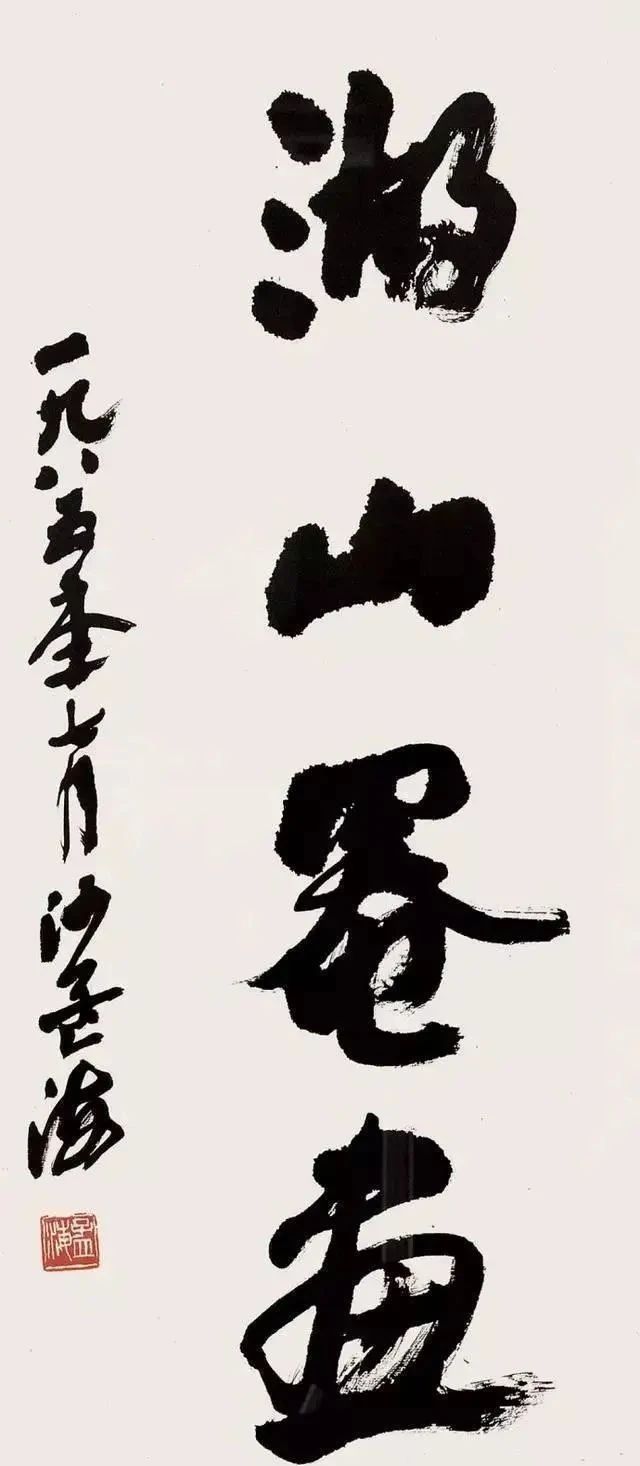 湖山罨畫
一九八五年七月沙孟海
孟海